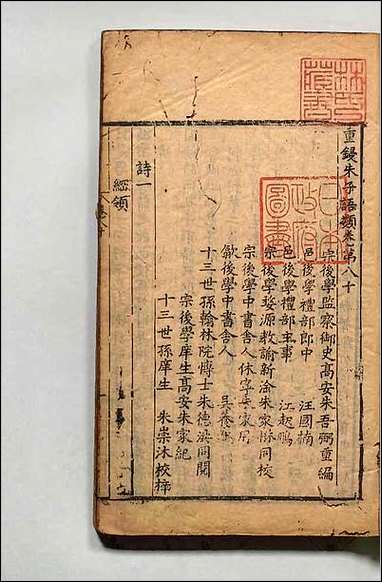 重鋟朱子語類卷第八十
宗後學監察御史高安朱吾弼重編
邑後學禮部郎中 汪國楠
邑後學禮部主事 江起鵬
宗後學婺源教諭新淦朱家楙同校
宗後學中書舍人休寧
歙後學中書舍人 吳養
十三世孫翰林院博士朱德洪同閱
宗後學庠生高安朱家紀
十三世孫庠生 朱崇沐校梓
詩一
綱領
林氏藏書
日本政府圖書